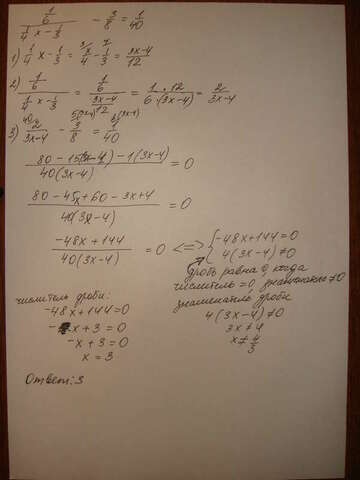 (1/6)/(1/4 x - 1/3) - 3/8 = 1/40
1) 1/4 x - 1/3 = x/4 - 1/3 = (3x-4)/12
2) (1/6)/(1/4 x - 1/3) = (1/6)/((3x-4)/12) = (1 · 12)/(6 · (3x-4)) = 2/(3x-4)
3) 2/(3x-4) - 3/8 = 1/40
(80 - 15(3x-4) - 1(3x-4))/(40(3x-4)) = 0
(80 - 45x + 60 - 3x + 4)/(40(3x-4)) = 0
(-48x + 144)/(40(3x-4)) = 0 <=> { -48x + 144 = 0
4(3x-4) ≠ 0
дробь равна 0, когда
числитель = 0, знаменатель ≠ 0
числитель дроби:
-48x + 144 = 0
-x + 3 = 0
-x + 3 = 0
x = 3
знаменатель дроби
4(3x-4) ≠ 0
3x ≠ 4
x ≠ 4/3
Ответ: 3